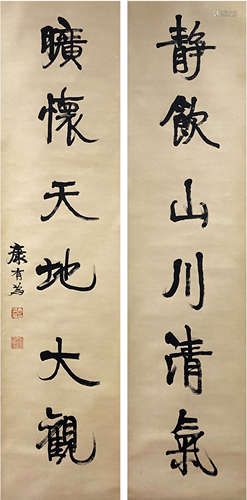 静飲山川清氣
曠懷天地大觀
康有為